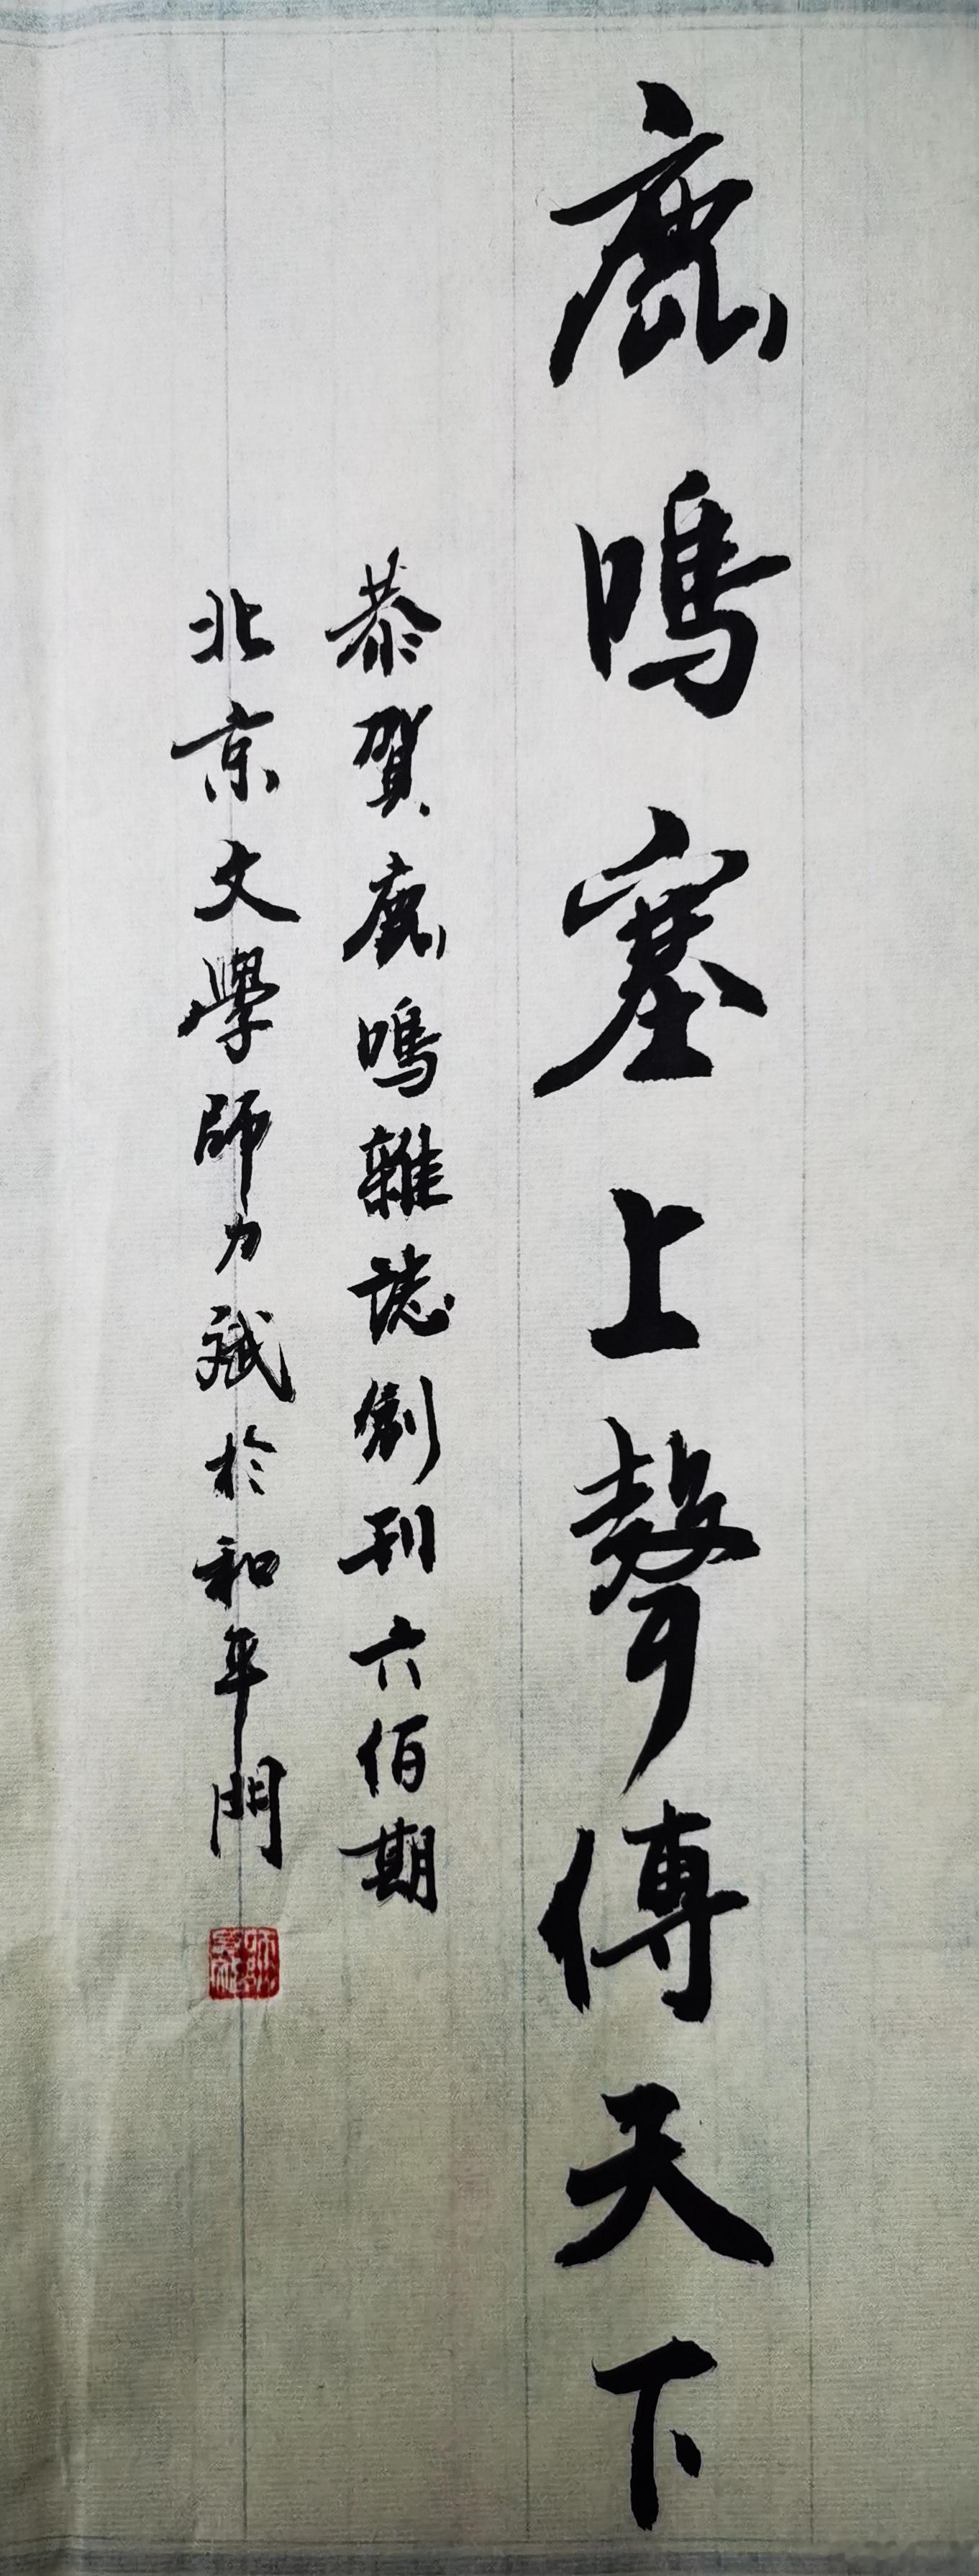 鹿鳴塞上聲傳天下
恭賀鹿鳴雜誌創刊六佰期
北京文學師力斌於和平門